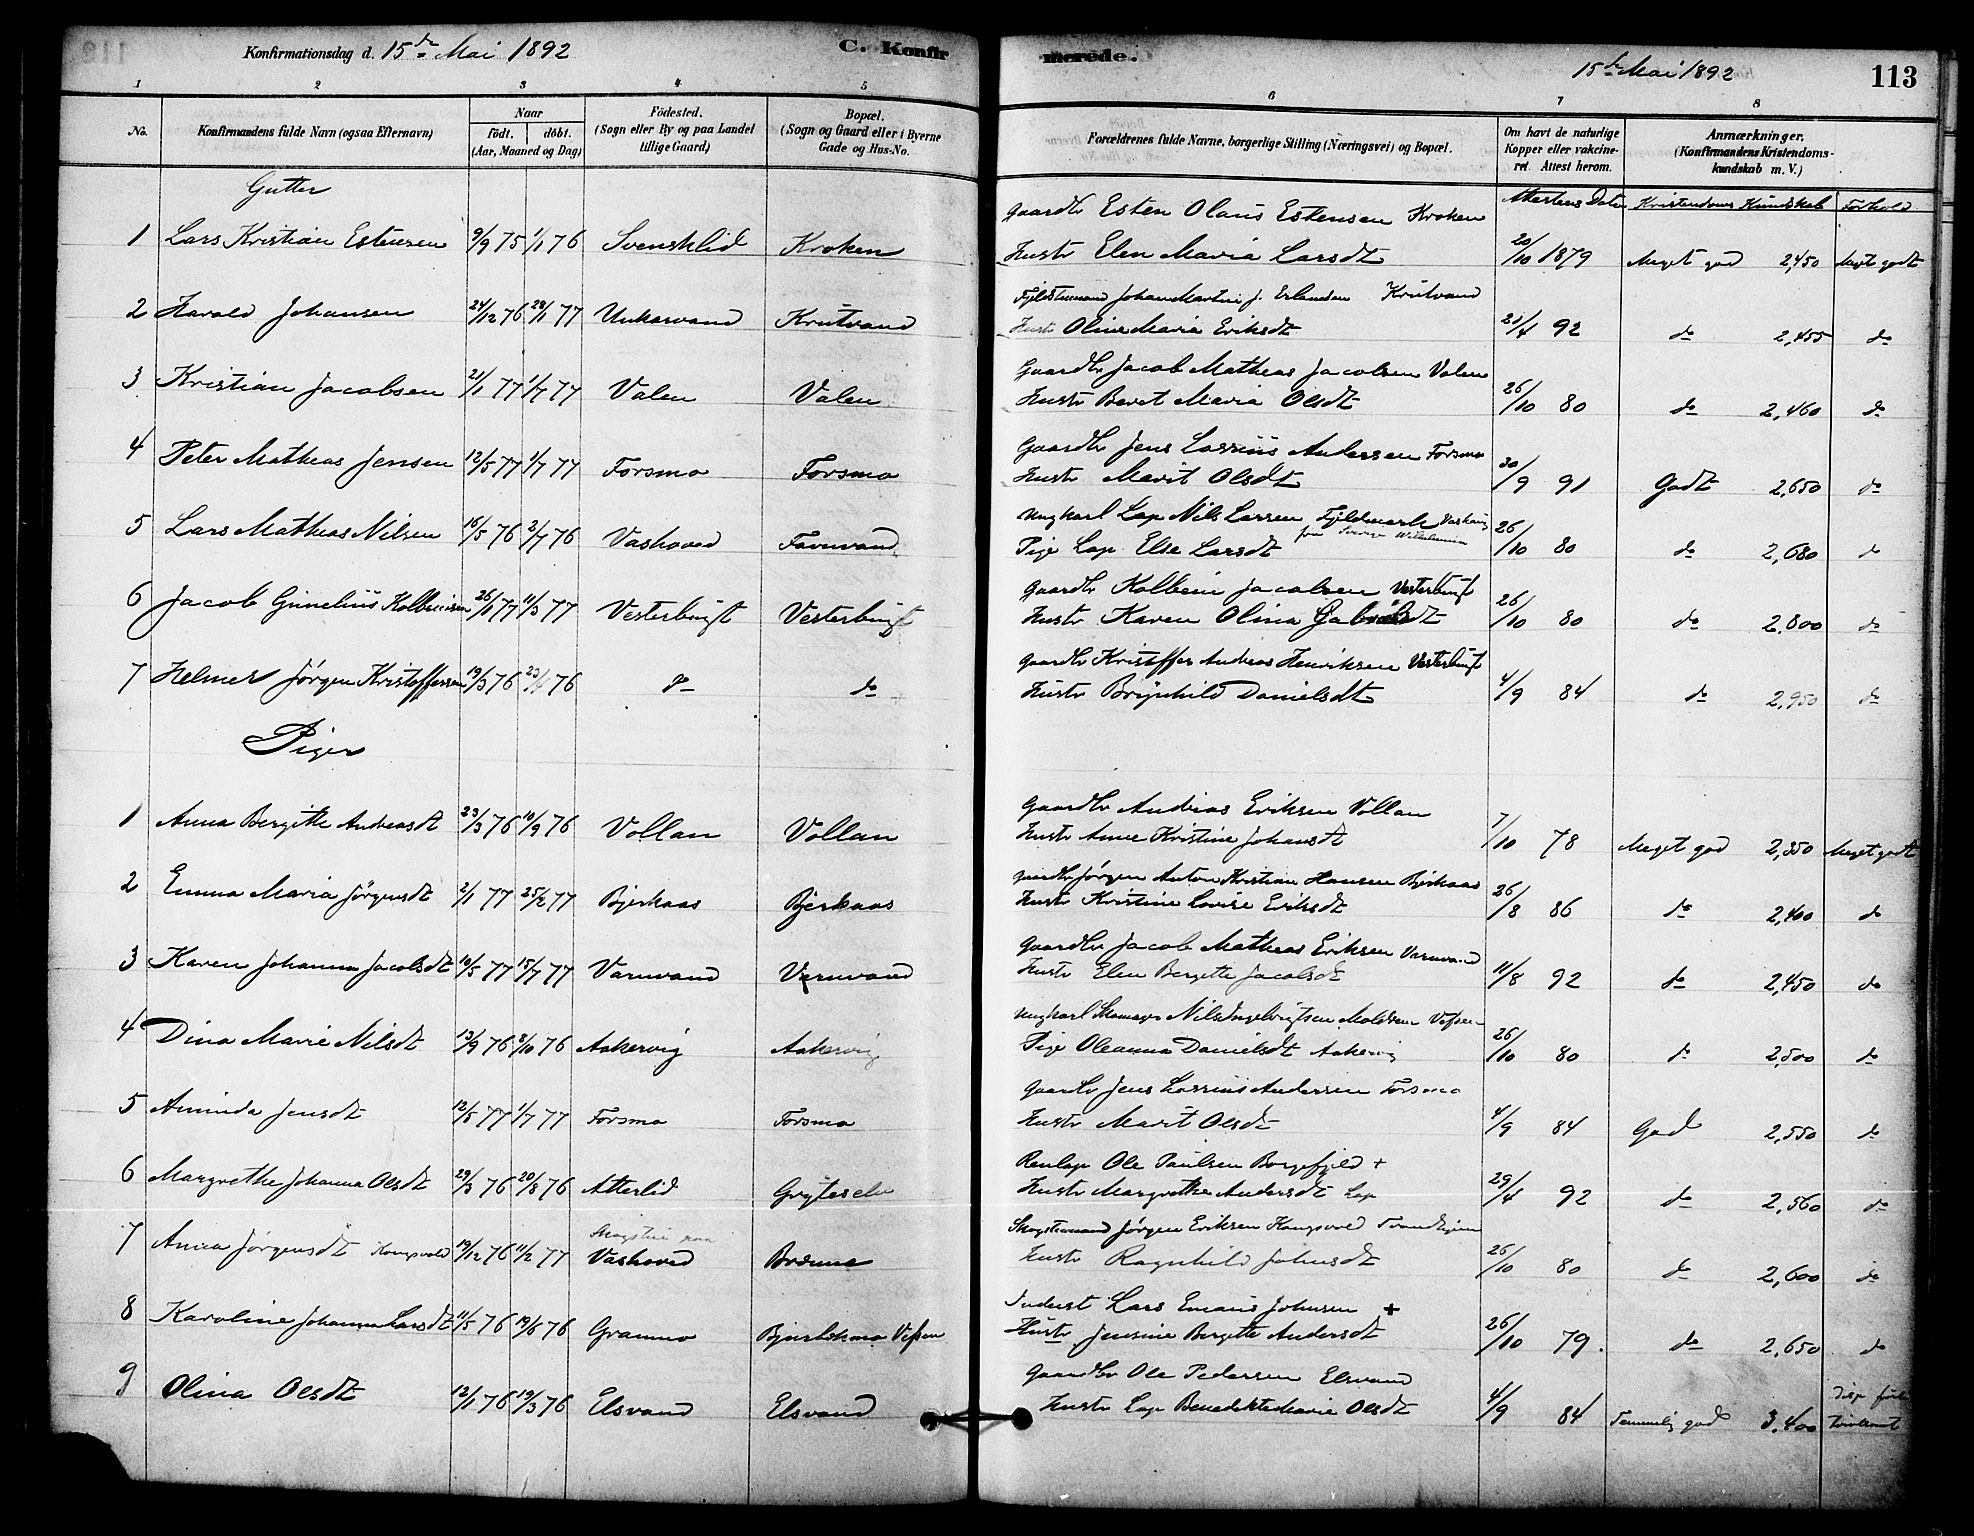 Konfirmationsdag d. 15de Mai 1892 C. Konfir
merede. 15de Mai 1892 113
1 2 3 4 5
6 7 8
No. Konfirmandens fulde Navn (ogsaa Efternavn) Naar födt. döbt. (Aar, Maaned og Dag) Födested. (Sogn eller By og paa Landet tillige Gaard) Bopæl. (Sogn og Gaard eller i Byerne Gade og Hus-No.
Forældrenes fulde Navne, borgerlige Stilling (Næringsvei) og Bopæl. Om havt de naturlige Kopper eller vakcineret. Attest herom. Anmærkninger. (Konfirmandens Kristendomskundskab m. V.)
Gutter
Attestens Dato Kristendoms Kundskab Forhold
1 Lars Kristian Estensen 9/9 75 1/1 76 Svensklid Kroken
Gaardbr Esten Olaus Estensen Kroken
Hustr Elen Maria Larsdt 20/10 1879 Meget god 2,450 Meget godt
2 Harald Johansen 24/12 76 28/1 77 Unkervand Krutvand
Fjeldstuemand Johan Martin J. Erlandsen Krutvand
Hustr Oline Maria Eriksdt 21/4 92 do 2,455 do
3 Kristian Jacobsen 21/1 77 1/7 77 Valen Valen
Gaardbr Jacob Mathias Jacobsen Valen
Hustr Beret Maria Olsdt 26/10 80 do 2,460 do
4 Peter Matheas Jensen 12/5 77 1/7 77 Forsmo Forsmo
Gaardbr Jens Lassius Andersen Forsmo
Hustr Marit Olsdt 30/9 91 Godt 2,650 do
5 Lars Matheas Nilsen 16/5 76 2/7 76 Vashoved Favnvand
Ungkarl Lap Nils Larsen Fjeldmark
fra Sverige Wilhelmina
Pige Lap Else Larsdt 26/10 80 do 2,680 do
6 Jacob Ginelius Kolbeinsen 26/1 77 11/3 77 Vesterbugt Vesterbugt
Gaardbr Kolbein Jacobsen Vesterbugt
Hustr Karen Olina Jakobsdt 26/10 80 do 2,800 do
7 Helmer Jørgen Kristoffersen 19/3 76 23/4 76 do do
Gaardbr Kristoffer Andreas Henriksen Vesterbugt
Hustr Brynhild Danielsdt 4/9 84 do 2,950 do
Piger
1 Anna Bergitte Andreasdt 23/3 76 10/9 76 Vollan Vollan
Gaardbr Andreas Eriksen Vollan
Hustr Anne Kristine Johansdt 7/10 78 Meget god 2,350 Meget godt
2 Emma Maria Jörgensdt 2/1 77 25/2 77 Bjerkaas Bjerkaas
Gaardbr Jørgen Anton Kristian Hansen Bjerkaas
Hustr Kristine Lovise Eriksdt 26/8 86 do 2,400 do
3 Karen Johanna Jacobsdt 10/5 77 15/7 77 Varnvand Varnvand
Gaardbr Jacob Matheas Eriksen Varnvand
Hustr Elen Bergitte Jacobsdt 11/8 92 do 2,450 do
4 Dina Marie Nilsdt 13/9 76 8/10 76 Aakervig Aakervig
Ungkarl Skomager Nils Ingebrigtsen Moldrem Vefsen
Pige Oleanna Danielsdt Aakervig 26/10 80 do 2,500 do
5 Aminda Jensdt 12/5 77 1/7 77 Forsmo Forsmo
Gaardbr Jens Lassius Andersen Forsmo
Hustr Marit Olsdt 4/9 84 God 2,550 do
6 Margrethe Johanna Olsdt 29/3 76 20/8 76 Atterlid Gryteselv
Renlap Ole Paulsen Borgefjeld +
Hustr Margrethe Andersdt Lap 29/4 92 do 2,560 do
7 Anna Jørgensdt Kongsvold 19/12 76 11/2 77 Vashoved
Skogstuemand Jørgen Eriksen Kongsvold Trondhjem
Hustr Ragnhild Johnsdt 26/10 80 do 2,600 do
8 Karoline Johanna Larsdt 11/5 76 19/6 76 Granmo Bjortskmo Vefsen
Inderst Lars Emaus Johnsen +
Hustr Jensine Bergitte Andersdt 26/10 79. do 2,650 do
9 Olina Olsdt 12/1 76 19/3 76 Elsvand Elsvand
Gaardbr Ole Pedersen Elsvand
Hustr Lap Benedikte Marie Olsdt 4/9 84 Temmelig god 3,400